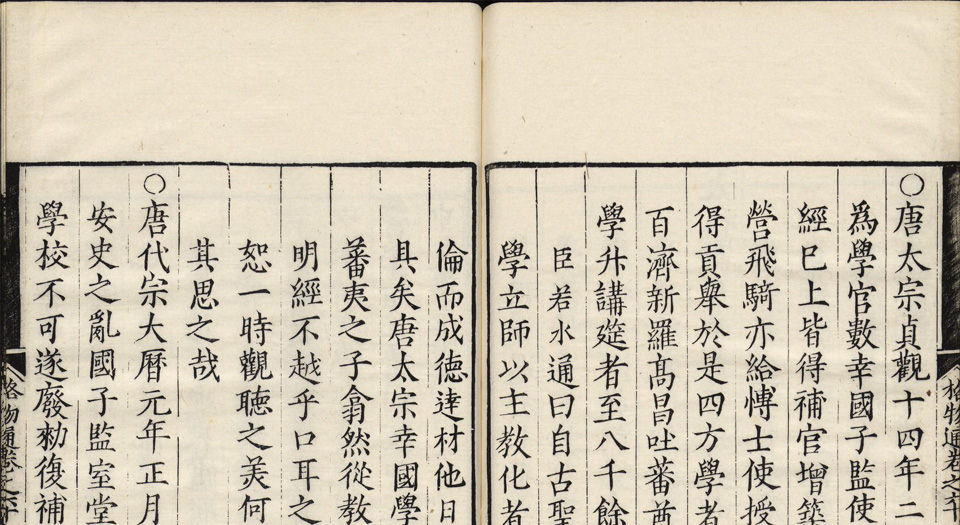 ○唐太宗貞觀十四年二
為學官數幸國子監使
經巳上皆得補官增築
營飛騎亦給博士使授
得貢舉於是四方學者
百濟新羅高昌吐蕃酋
學升講筵者至八千餘
臣若水通曰自古聖
學立師以主教化者
倫而成德達材他日
具矣唐太宗幸國學
蕃夷之子翕然從教
明經不越乎口耳之
恕一時觀聽之美何
其思之哉
○唐代宗大曆元年正月
安史之亂國子監室堂
學校不可遂廢勑復補
格物通卷之六十
格物通卷之六十